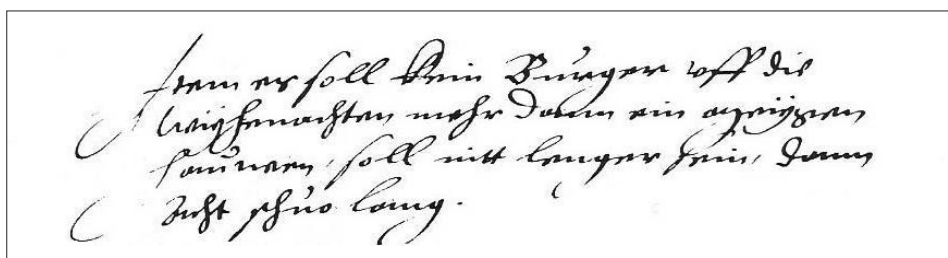 Item es soll kein Burger vff die
Weyhenachten mehr dann ein meyen
hauwen, soll nitt lenger sein, dann
Acht schuo lang.